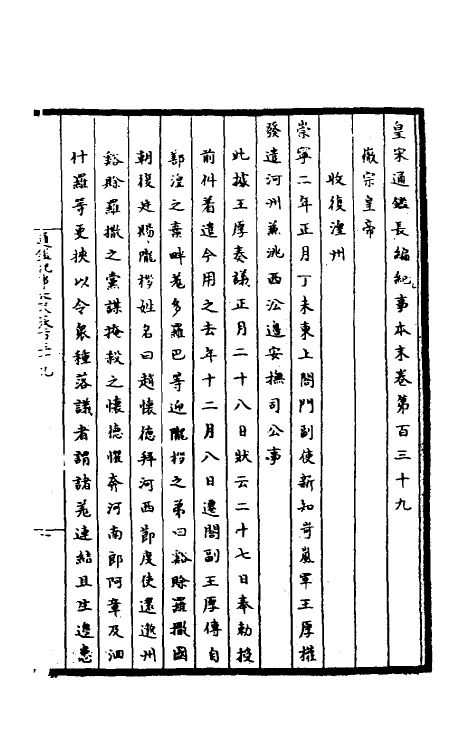 皇宋通鑑長編紀事本末卷第百三十九
徽宗皇帝
收復湟州
崇寧二年正月丁未東上閤門副使新知岢嵐軍王厚權
發遣河州兼洮西沿邊安撫司公事
此據王厚奏議正月二十八日狀云二十七日奉勅授
前件着遣今用之去年十二月八日遷閤副王厚傳自
鄯湟之棄畔羌多羅巴等迎隴拶之弟曰谿賒羅撒國
朝復廷賜隴拶姓名曰趙懷德拜河西節度使還邈州
谿賒羅撒之黨謀掩殺之懷德懼奔河南郎阿章及泗
什羅等更挾以令衆種落議者謂諸羌連結且庄邊患